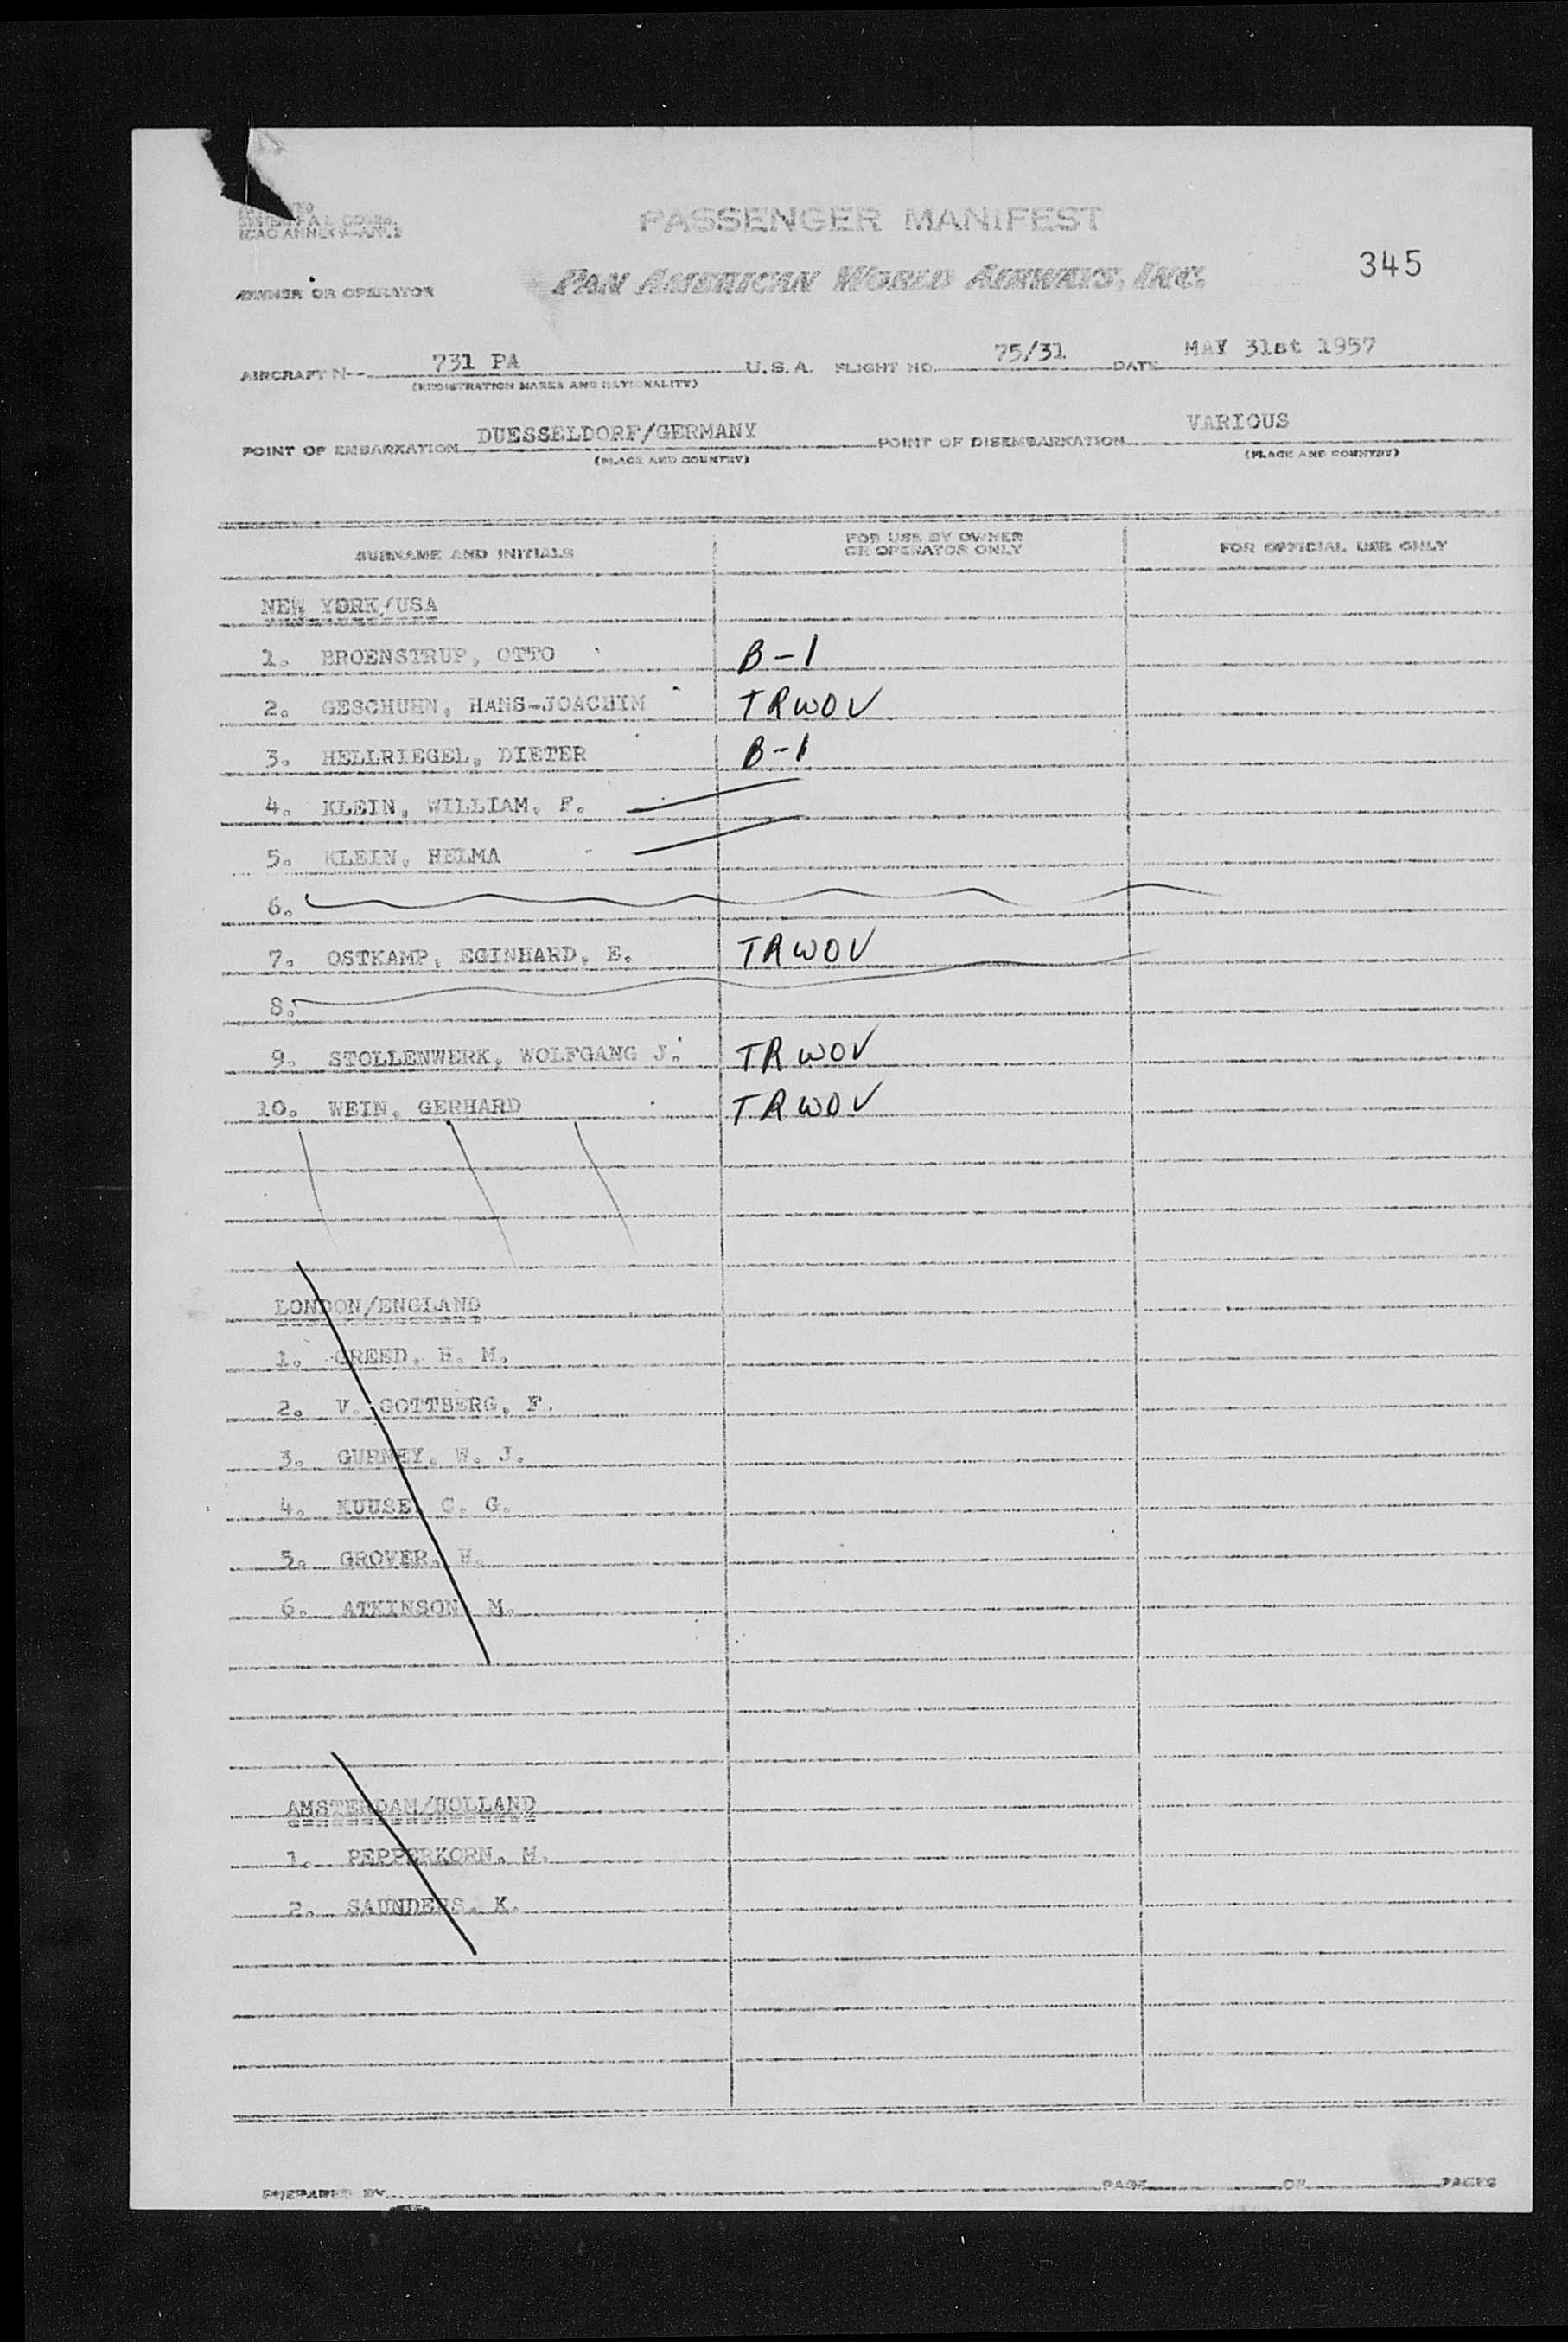 ICAO ANNEX 9-APP. 2
PASSENGER MANIFEST
345
OWNER OR OPERATOR PAN AMERICAN WORLD AIRWAYS, INC.
AIRCRAFT N-- 731 PA U.S.A. FLIGHT NO. 75/31 DATE MAY 31st 1957
(REGISTRATION MARKS AND NATIONALITY)
POINT OF EMBARKATION DUESSELDORF/GERMANY POINT OF DISEMBARKATION VARIOUS
(PLACE AND COUNTRY) (PLACE AND COUNTRY)
SURNAME AND INITIALS FOR USE BY OWNER OR OPERATOR ONLY FOR OFFICIAL USE ONLY
NEW YORK/USA
1. BROENSTRUP, OTTO B-1
2. GESCHUHN, HANS-JOACHIM TRWOV
3. HELLRIEGEL, DIETER B-1
4. KLEIN, WILLIAM, F.
5. KLEIN, HELMA
6.
7. OSTKAMP, EGINHARD, E. TRWOV
8.
9. STOLLENWERK, WOLFGANG J. TRWOV
10. WEIN, GERHARD TRWOV
LONDON/ENGLAND
1. CREED, H. M.
2. V. GOTTBERG, F.
3. GURNEY, W. J.
4. KUUSE, C. G.
5. GROVER, H.
6. ATKINSON, M.
AMSTERDAM/HOLLAND
1. PEPPERKORN, M.
2. SAUNDERS, K.
PREPARED BY PAGE OF PAGES